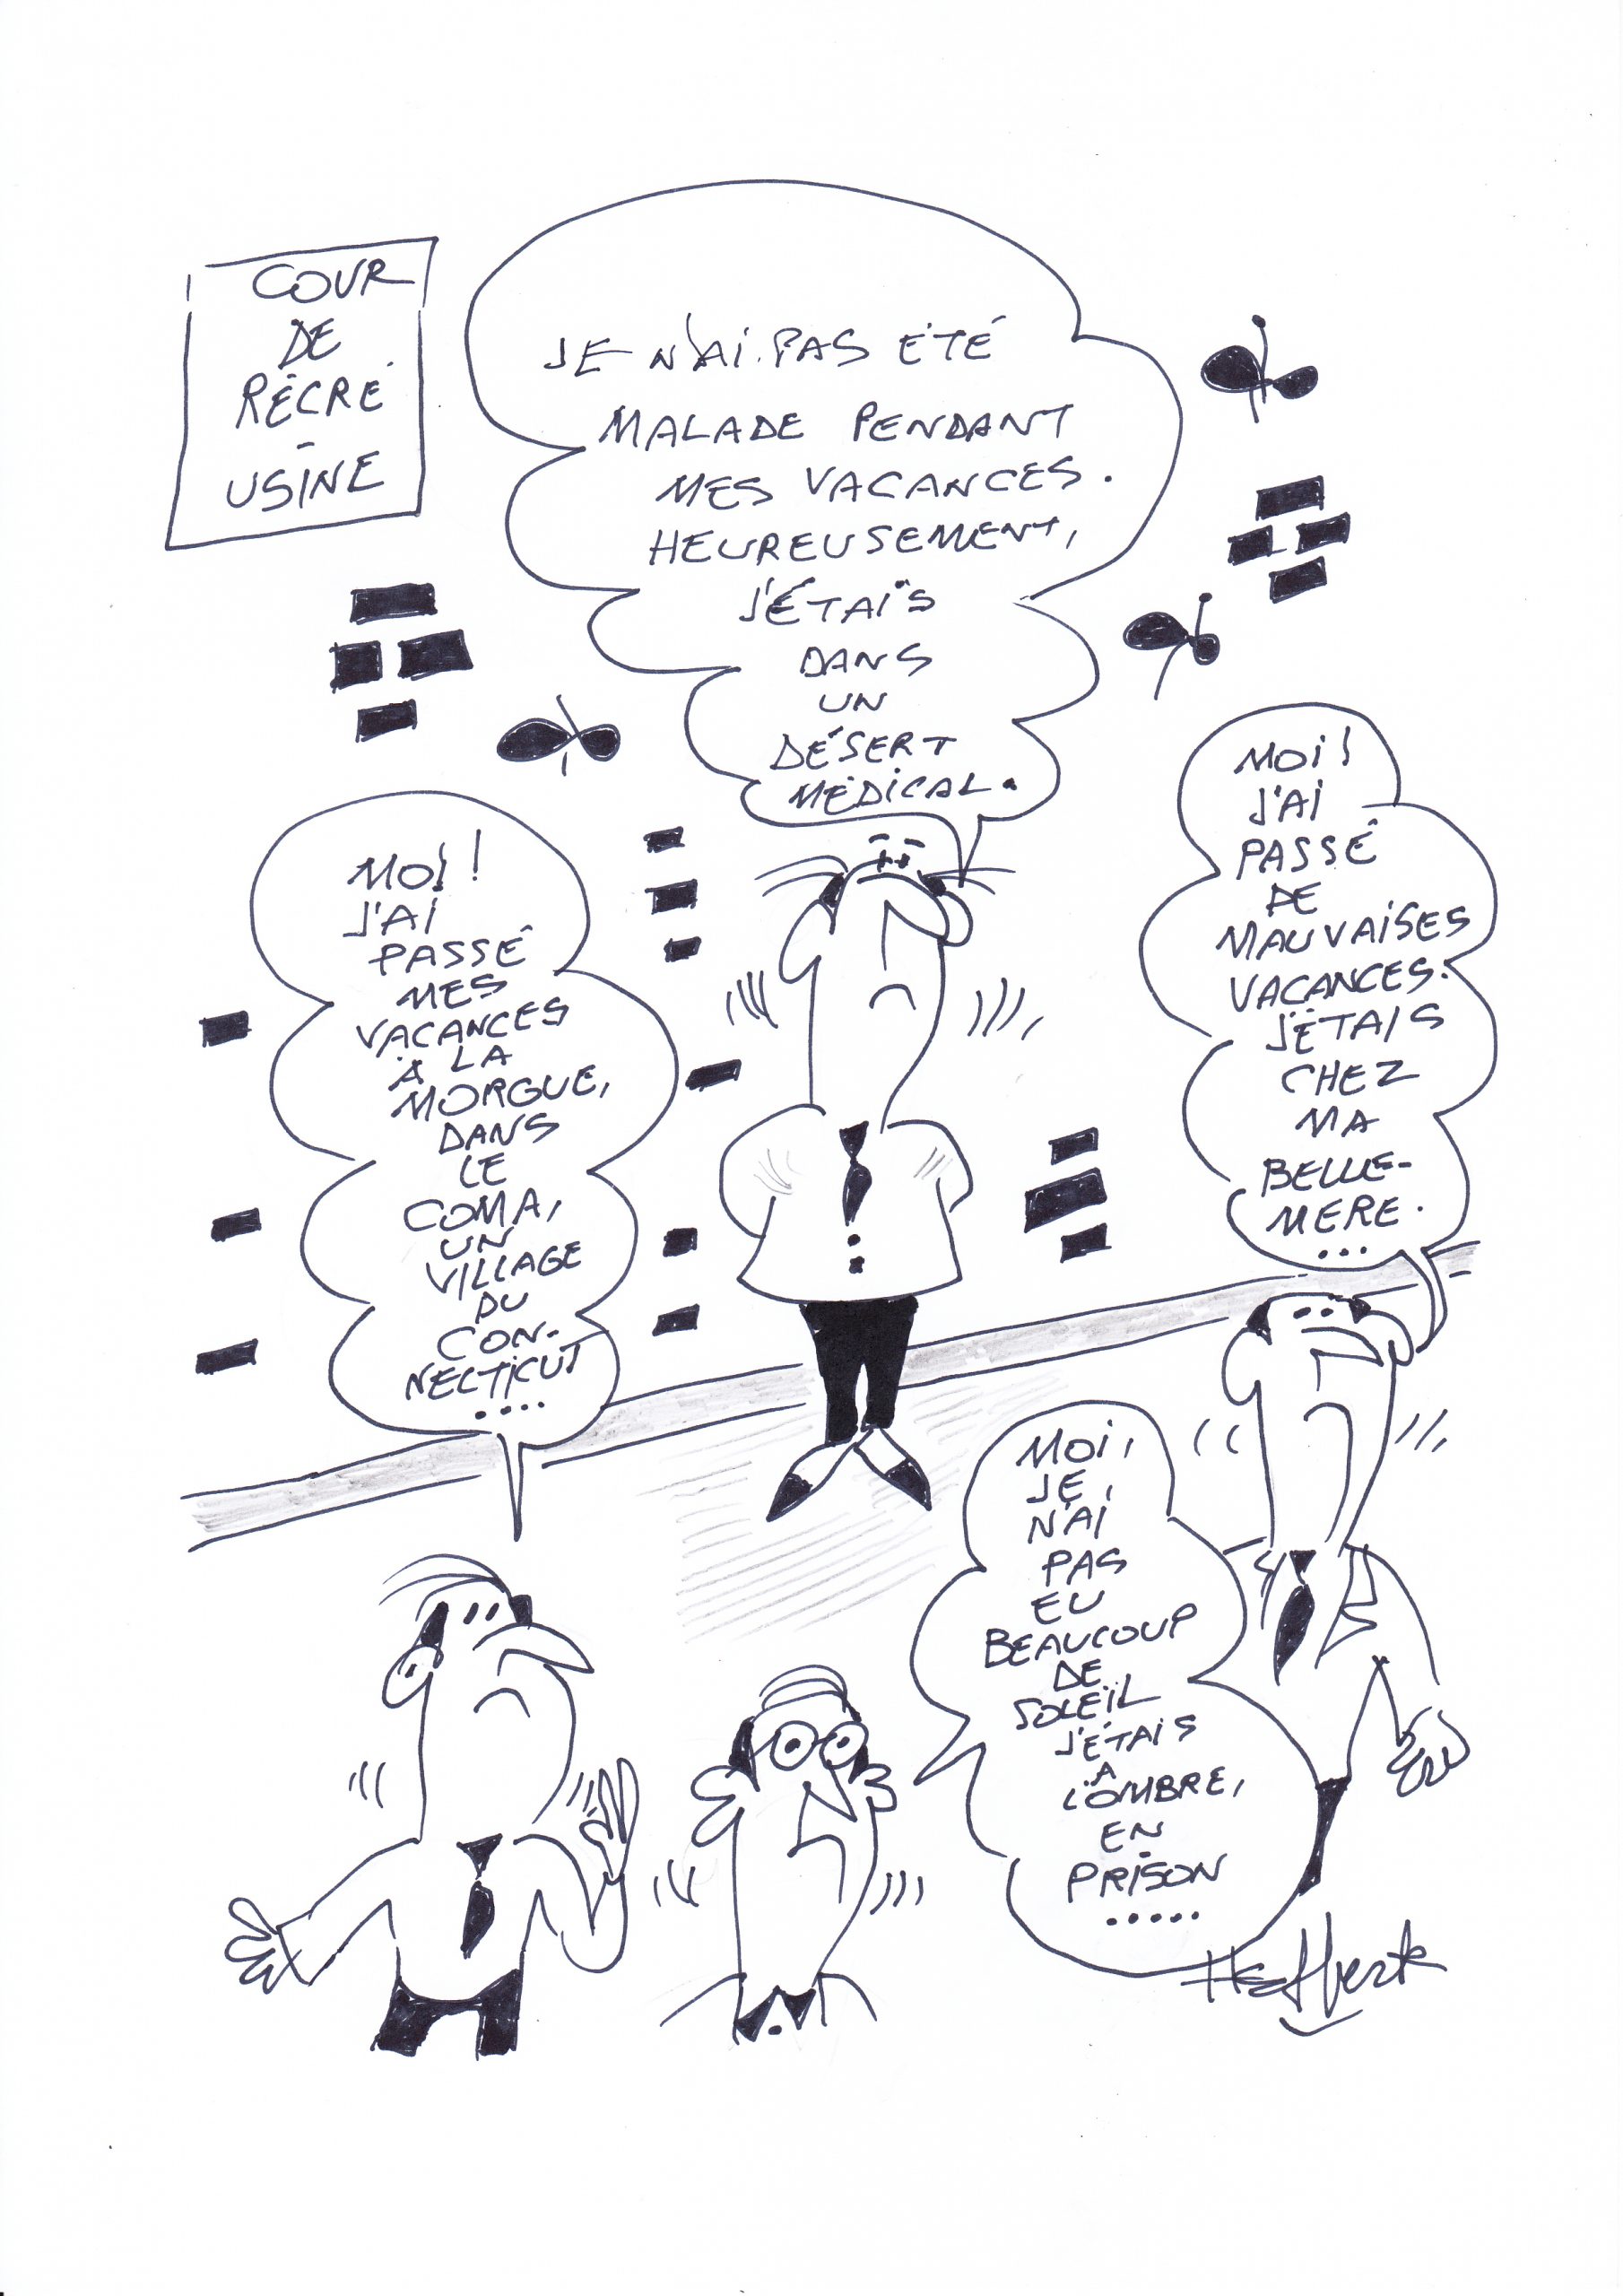 COUR
DE
RÉCRÉ
-
USINE
JE N'AI PAS ÉTÉ
MALADE PENDANT
MES VACANCES.
HEUREUSEMENT,
J'ÉTAIS
DANS
UN
DÉSERT
MÉDICAL.
MOI !
J'AI
PASSÉ
MES
VACANCES
À LA
MORGUE,
DANS
LE
COMA,
UN
VILLAGE
DU
CON-
NECTICUT
....
MOI !
J'AI
PASSÉ
DE
MAUVAISES
VACANCES.
J'ÉTAIS
CHEZ
MA
BELLE-
MERE.
...
MOI,
JE
N'AI
PAS
EU
BEAUCOUP
DE
SOLEIL
J'ÉTAIS
À
L'OMBRE,
EN
PRISON
.....